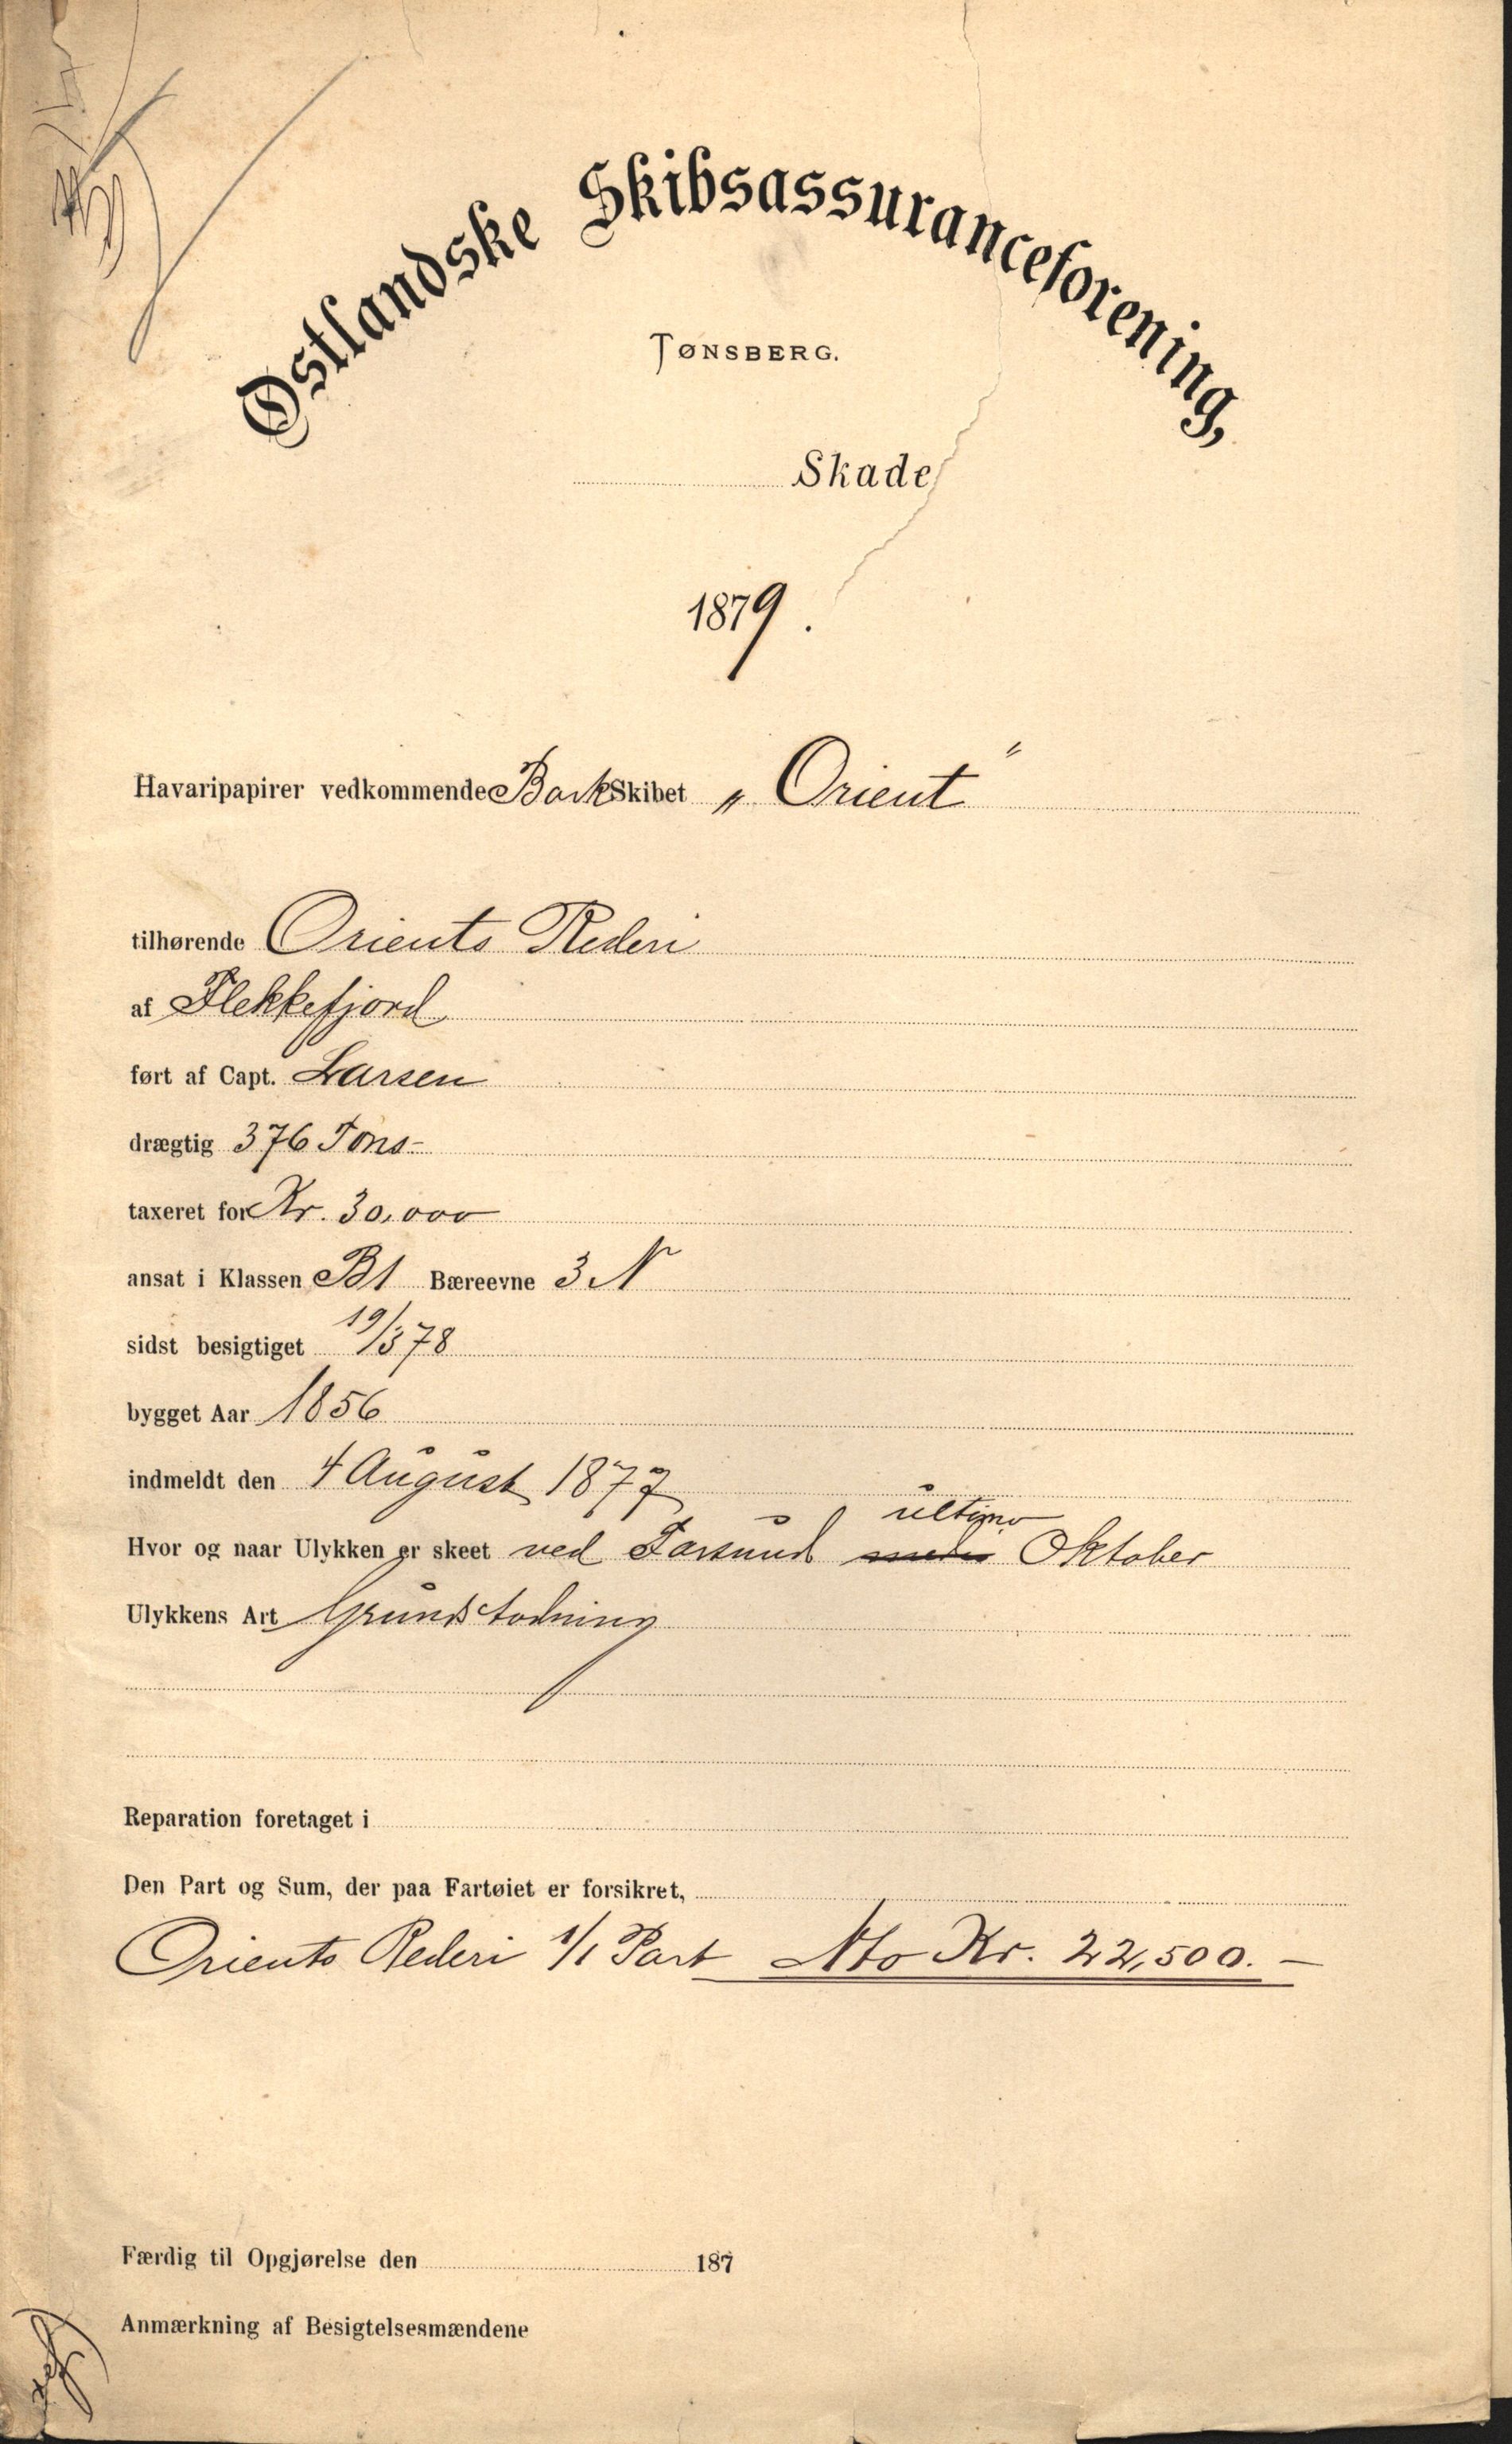 Østlandske Skibsassuranceforening,
TØNSBERG.
Skade
1879.
Havaripapirer vedkommende Bark Skibet „Orient"
tilhørende Orients Rederi
af Flekkefjord
ført af Capt. Larsen
drægtig 376 Tons-
taxeret for Kr. 30,000
ansat i Klassen B1 Bæreevne 3 N
sidst besigtiget 19/3 78
bygget Aar 1856
indmeldt den 4 August 1877
ultimo
Hvor og naar Ulykken er skeet ved Farsund Oktober
Ulykkens Art Grundstødning
Reparation foretaget i
Den Part og Sum, der paa Fartøiet er forsikret,
Orients Rederi 1/1 Part Nto Kr. 22,500.-
Færdig til Opgjørelse den 187
Anmærkning af Besigtelsesmændene